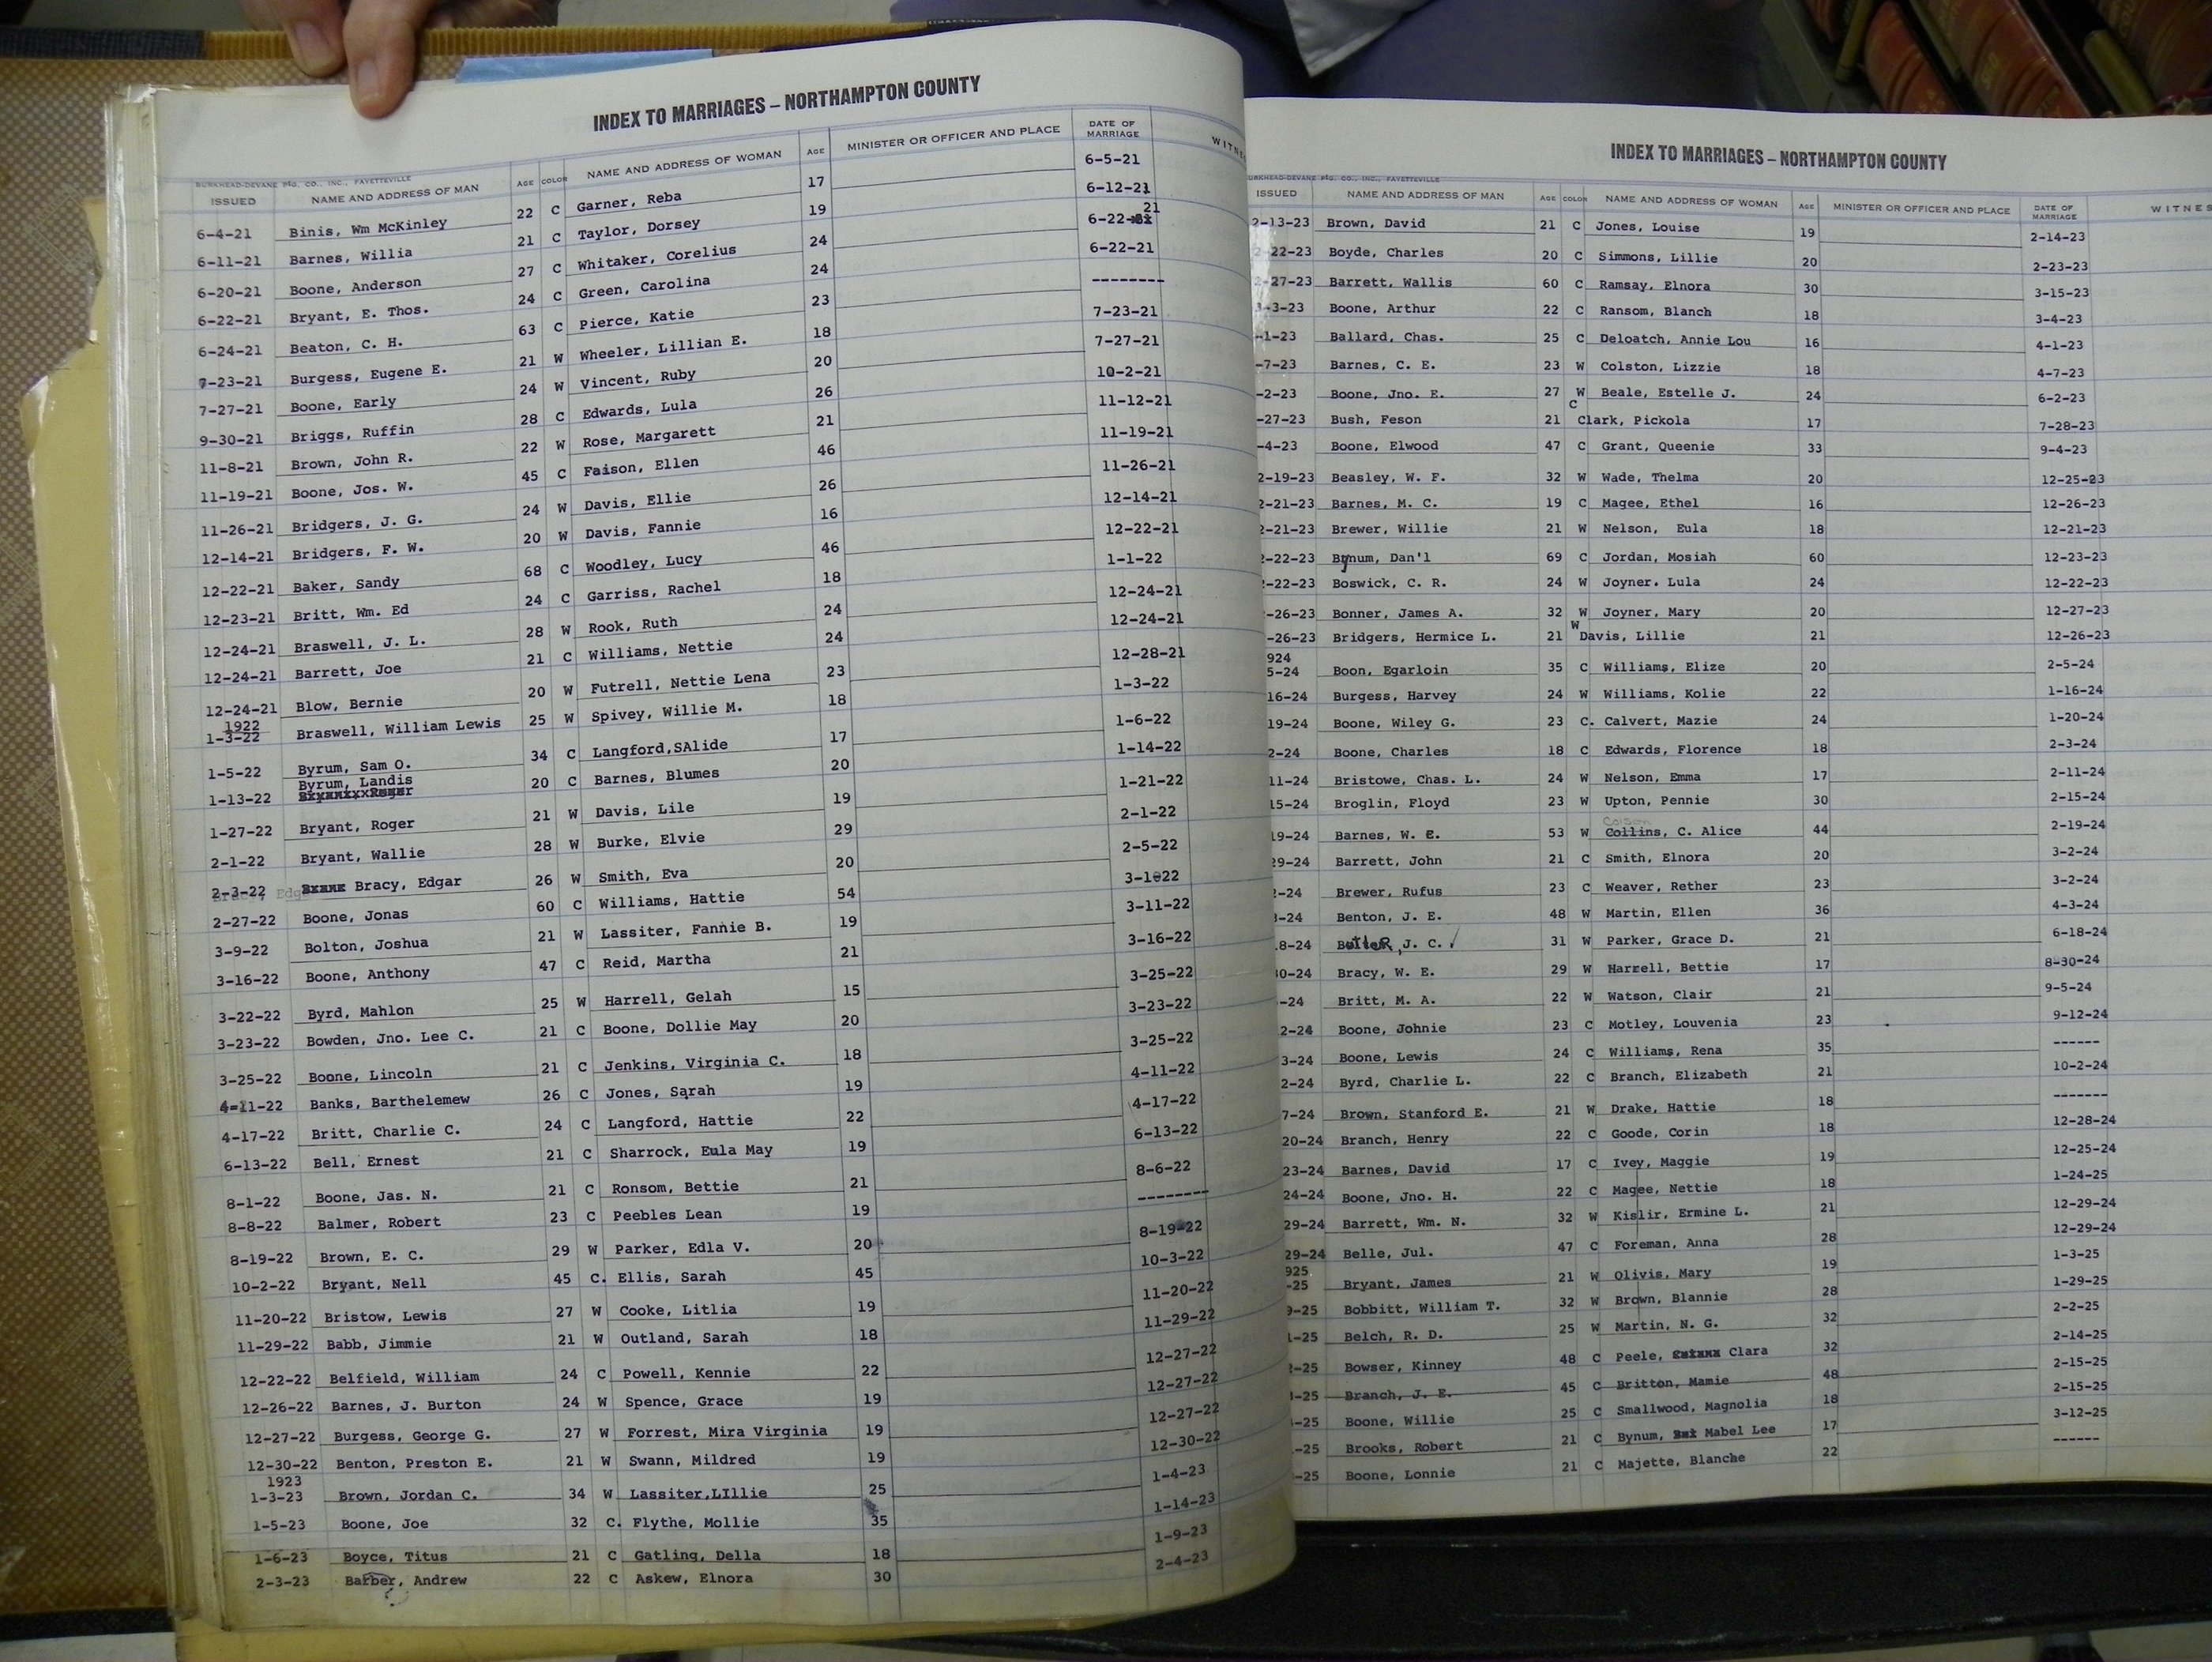 INDEX TO MARRIAGES – NORTHAMPTON COUNTY
BURKHEAD-DEVANE PTG. CO., INC., FAYETTEVILLE
ISSUED NAME AND ADDRESS OF MAN AGE COLOR NAME AND ADDRESS OF WOMAN AGE MINISTER OR OFFICER AND PLACE DATE OF MARRIAGE
6-4-21 Binis, Wm McKinley 22 C Garner, Reba 17 6-5-21
6-11-21 Barnes, Willia 21 C Taylor, Dorsey 19 6-12-21
6-20-21 Boone, Anderson 27 C Whitaker, Corelius 24 6-22-21
6-22-21 Bryant, E. Thos. 24 C Green, Carolina 24 6-22-21
6-24-21 Beaton, C. H. 63 C Pierce, Katie 23 --------
7-23-21 Burgess, Eugene E. 21 W Wheeler, Lillian E. 18 7-23-21
7-27-21 Boone, Early 24 W Vincent, Ruby 20 7-27-21
9-30-21 Briggs, Ruffin 28 C Edwards, Lula 26 10-2-21
11-8-21 Brown, John R. 22 W Rose, Margarett 21 11-12-21
11-19-21 Boone, Jos. W. 45 C Faison, Ellen 46 11-19-21
11-26-21 Bridgers, J. G. 24 W Davis, Ellie 26 11-26-21
12-14-21 Bridgers, F. W. 20 W Davis, Fannie 16 12-14-21
12-22-21 Baker, Sandy 68 C Woodley, Lucy 46 12-22-21
12-23-21 Britt, Wm. Ed 24 C Garriss, Rachel 18 1-1-22
12-24-21 Braswell, J. L. 28 W Rook, Ruth 24 12-24-21
12-24-21 Barrett, Joe 21 C Williams, Nettie 24 12-24-21
12-24-21 Blow, Bernie 20 W Futrell, Nettie Lena 23 12-28-21
1922
1-3-22 Braswell, William Lewis 25 W Spivey, Willie M. 18 1-3-22
1-5-22 Byrum, Sam O. 34 C Langford,SAlide 17 1-6-22
1-13-22 Byrum, Landis 20 C Barnes, Blumes 20 1-14-22
1-27-22 Bryant, Roger 21 W Davis, Lile 19 1-21-22
2-1-22 Bryant, Wallie 28 W Burke, Elvie 29 2-1-22
2-3-22 Bracy, Edgar 26 W Smith, Eva 20 2-5-22
2-27-22 Boone, Jonas 60 C Williams, Hattie 54 3-1022
3-9-22 Bolton, Joshua 21 W Lassiter, Fannie B. 19 3-11-22
3-16-22 Boone, Anthony 47 C Reid, Martha 21 3-16-22
3-22-22 Byrd, Mahlon 25 W Harrell, Gelah 15 3-25-22
3-23-22 Bowden, Jno. Lee C. 21 C Boone, Dollie May 20 3-23-22
3-25-22 Boone, Lincoln 21 C Jenkins, Virginia C. 18 3-25-22
4-11-22 Banks, Barthelemew 26 C Jones, Sarah 19 4-11-22
4-17-22 Britt, Charlie C. 24 C Langford, Hattie 22 4-17-22
6-13-22 Bell, Ernest 21 C Sharrock, Eula May 19 6-13-22
8-1-22 Boone, Jas. N. 21 C Ronsom, Bettie 21 8-6-22
8-8-22 Balmer, Robert 23 C Peebles Lean 19 --------
8-19-22 Brown, E. C. 29 W Parker, Edla V. 20 8-19-22
10-2-22 Bryant, Nell 45 C. Ellis, Sarah 45 10-3-22
11-20-22 Bristow, Lewis 27 W Cooke, Litlia 19 11-20-22
11-29-22 Babb, Jimmie 21 W Outland, Sarah 18 11-29-22
12-22-22 Belfield, William 24 C Powell, Kennie 22 12-27-22
12-26-22 Barnes, J. Burton 24 W Spence, Grace 19 12-27-22
12-27-22 Burgess, George G. 27 W Forrest, Mira Virginia 19 12-27-22
12-30-22 Benton, Preston E. 21 W Swann, Mildred 19 12-30-22
1923
1-3-23 Brown, Jordan C. 34 W Lassiter,LIllie 25 1-4-23
1-5-23 Boone, Joe 32 C. Flythe, Mollie 35 1-14-23
1-6-23 Boyce, Titus 21 C Gatling, Della 18 1-9-23
2-3-23 Barber, Andrew 22 C Askew, Elnora 30 2-4-23
INDEX TO MARRIAGES – NORTHAMPTON COUNTY
BURKHEAD-DEVANE PTG. CO., INC., FAYETTEVILLE
ISSUED NAME AND ADDRESS OF MAN AGE COLOR NAME AND ADDRESS OF WOMAN AGE MINISTER OR OFFICER AND PLACE DATE OF MARRIAGE WITNES
2-13-23 Brown, David 21 C Jones, Louise 19 2-14-23
2-22-23 Boyde, Charles 20 C Simmons, Lillie 20 2-23-23
2-27-23 Barrett, Wallis 60 C Ramsay, Elnora 30 3-15-23
3-3-23 Boone, Arthur 22 C Ransom, Blanch 18 3-4-23
-1-23 Ballard, Chas. 25 C Deloatch, Annie Lou 16 4-1-23
-7-23 Barnes, C. E. 23 W Colston, Lizzie 18 4-7-23
-2-23 Boone, Jno. E. 27 W Beale, Estelle J. 24 6-2-23
-27-23 Bush, Feson 21 C Clark, Pickola 17 7-28-23
-4-23 Boone, Elwood 47 C Grant, Queenie 33 9-4-23
2-19-23 Beasley, W. F. 32 W Wade, Thelma 20 12-25-23
2-21-23 Barnes, M. C. 19 C Magee, Ethel 16 12-26-23
2-21-23 Brewer, Willie 21 W Nelson, Eula 18 12-21-23
2-22-23 Bynum, Dan'l 69 C Jordan, Mosiah 60 12-23-23
2-22-23 Boswick, C. R. 24 W Joyner. Lula 24 12-22-23
-26-23 Bonner, James A. 32 W Joyner, Mary 20 12-27-23
-26-23 Bridgers, Hermice L. 21 W Davis, Lillie 21 12-26-23
924
5-24 Boon, Egarloin 35 C Williams, Elize 20 2-5-24
16-24 Burgess, Harvey 24 W Williams, Kolie 22 1-16-24
19-24 Boone, Wiley G. 23 C. Calvert, Mazie 24 1-20-24
2-24 Boone, Charles 18 C Edwards, Florence 18 2-3-24
11-24 Bristowe, Chas. L. 24 W Nelson, Emma 17 2-11-24
15-24 Broglin, Floyd 23 W Upton, Pennie 30 2-15-24
Colson
19-24 Barnes, W. E. 53 W Collins, C. Alice 44 2-19-24
29-24 Barrett, John 21 C Smith, Elnora 20 3-2-24
-24 Brewer, Rufus 23 C Weaver, Rether 23 3-2-24
-24 Benton, J. E. 48 W Martin, Ellen 36 4-3-24
8-24 Butler, J. C. 31 W Parker, Grace D. 21 6-18-24
30-24 Bracy, W. E. 29 W Harrell, Bettie 17 8-30-24
-24 Britt, M. A. 22 W Watson, Clair 21 9-5-24
2-24 Boone, Johnie 23 C Motley, Louvenia 23 9-12-24
3-24 Boone, Lewis 24 C Williams, Rena 35 ------
2-24 Byrd, Charlie L. 22 C Branch, Elizabeth 21 10-2-24
7-24 Brown, Stanford E. 21 W Drake, Hattie 18 -------
20-24 Branch, Henry 22 C Goode, Corin 18 12-28-24
23-24 Barnes, David 17 C Ivey, Maggie 19 12-25-24
24-24 Boone, Jno. H. 22 C Magee, Nettie 18 1-24-25
29-24 Barrett, Wm. N. 32 W Kislir, Ermine L. 21 12-29-24
29-24 Belle, Jul. 47 C Foreman, Anna 28 12-29-24
925
-25 Bryant, James 21 W Olivis, Mary 19 1-3-25
9-25 Bobbitt, William T. 32 W Brown, Blannie 28 1-29-25
1-25 Belch, R. D. 25 W Martin, N. G. 32 2-2-25
-25 Bowser, Kinney 48 C Peele, Clara 32 2-14-25
-25 Branch, J. E. 45 C Britton, Mamie 48 2-15-25
-25 Boone, Willie 25 C Smallwood, Magnolia 18 2-15-25
-25 Brooks, Robert 21 C Bynum, Mabel Lee 17 3-12-25
-25 Boone, Lonnie 21 C Majette, Blanche 22 ------